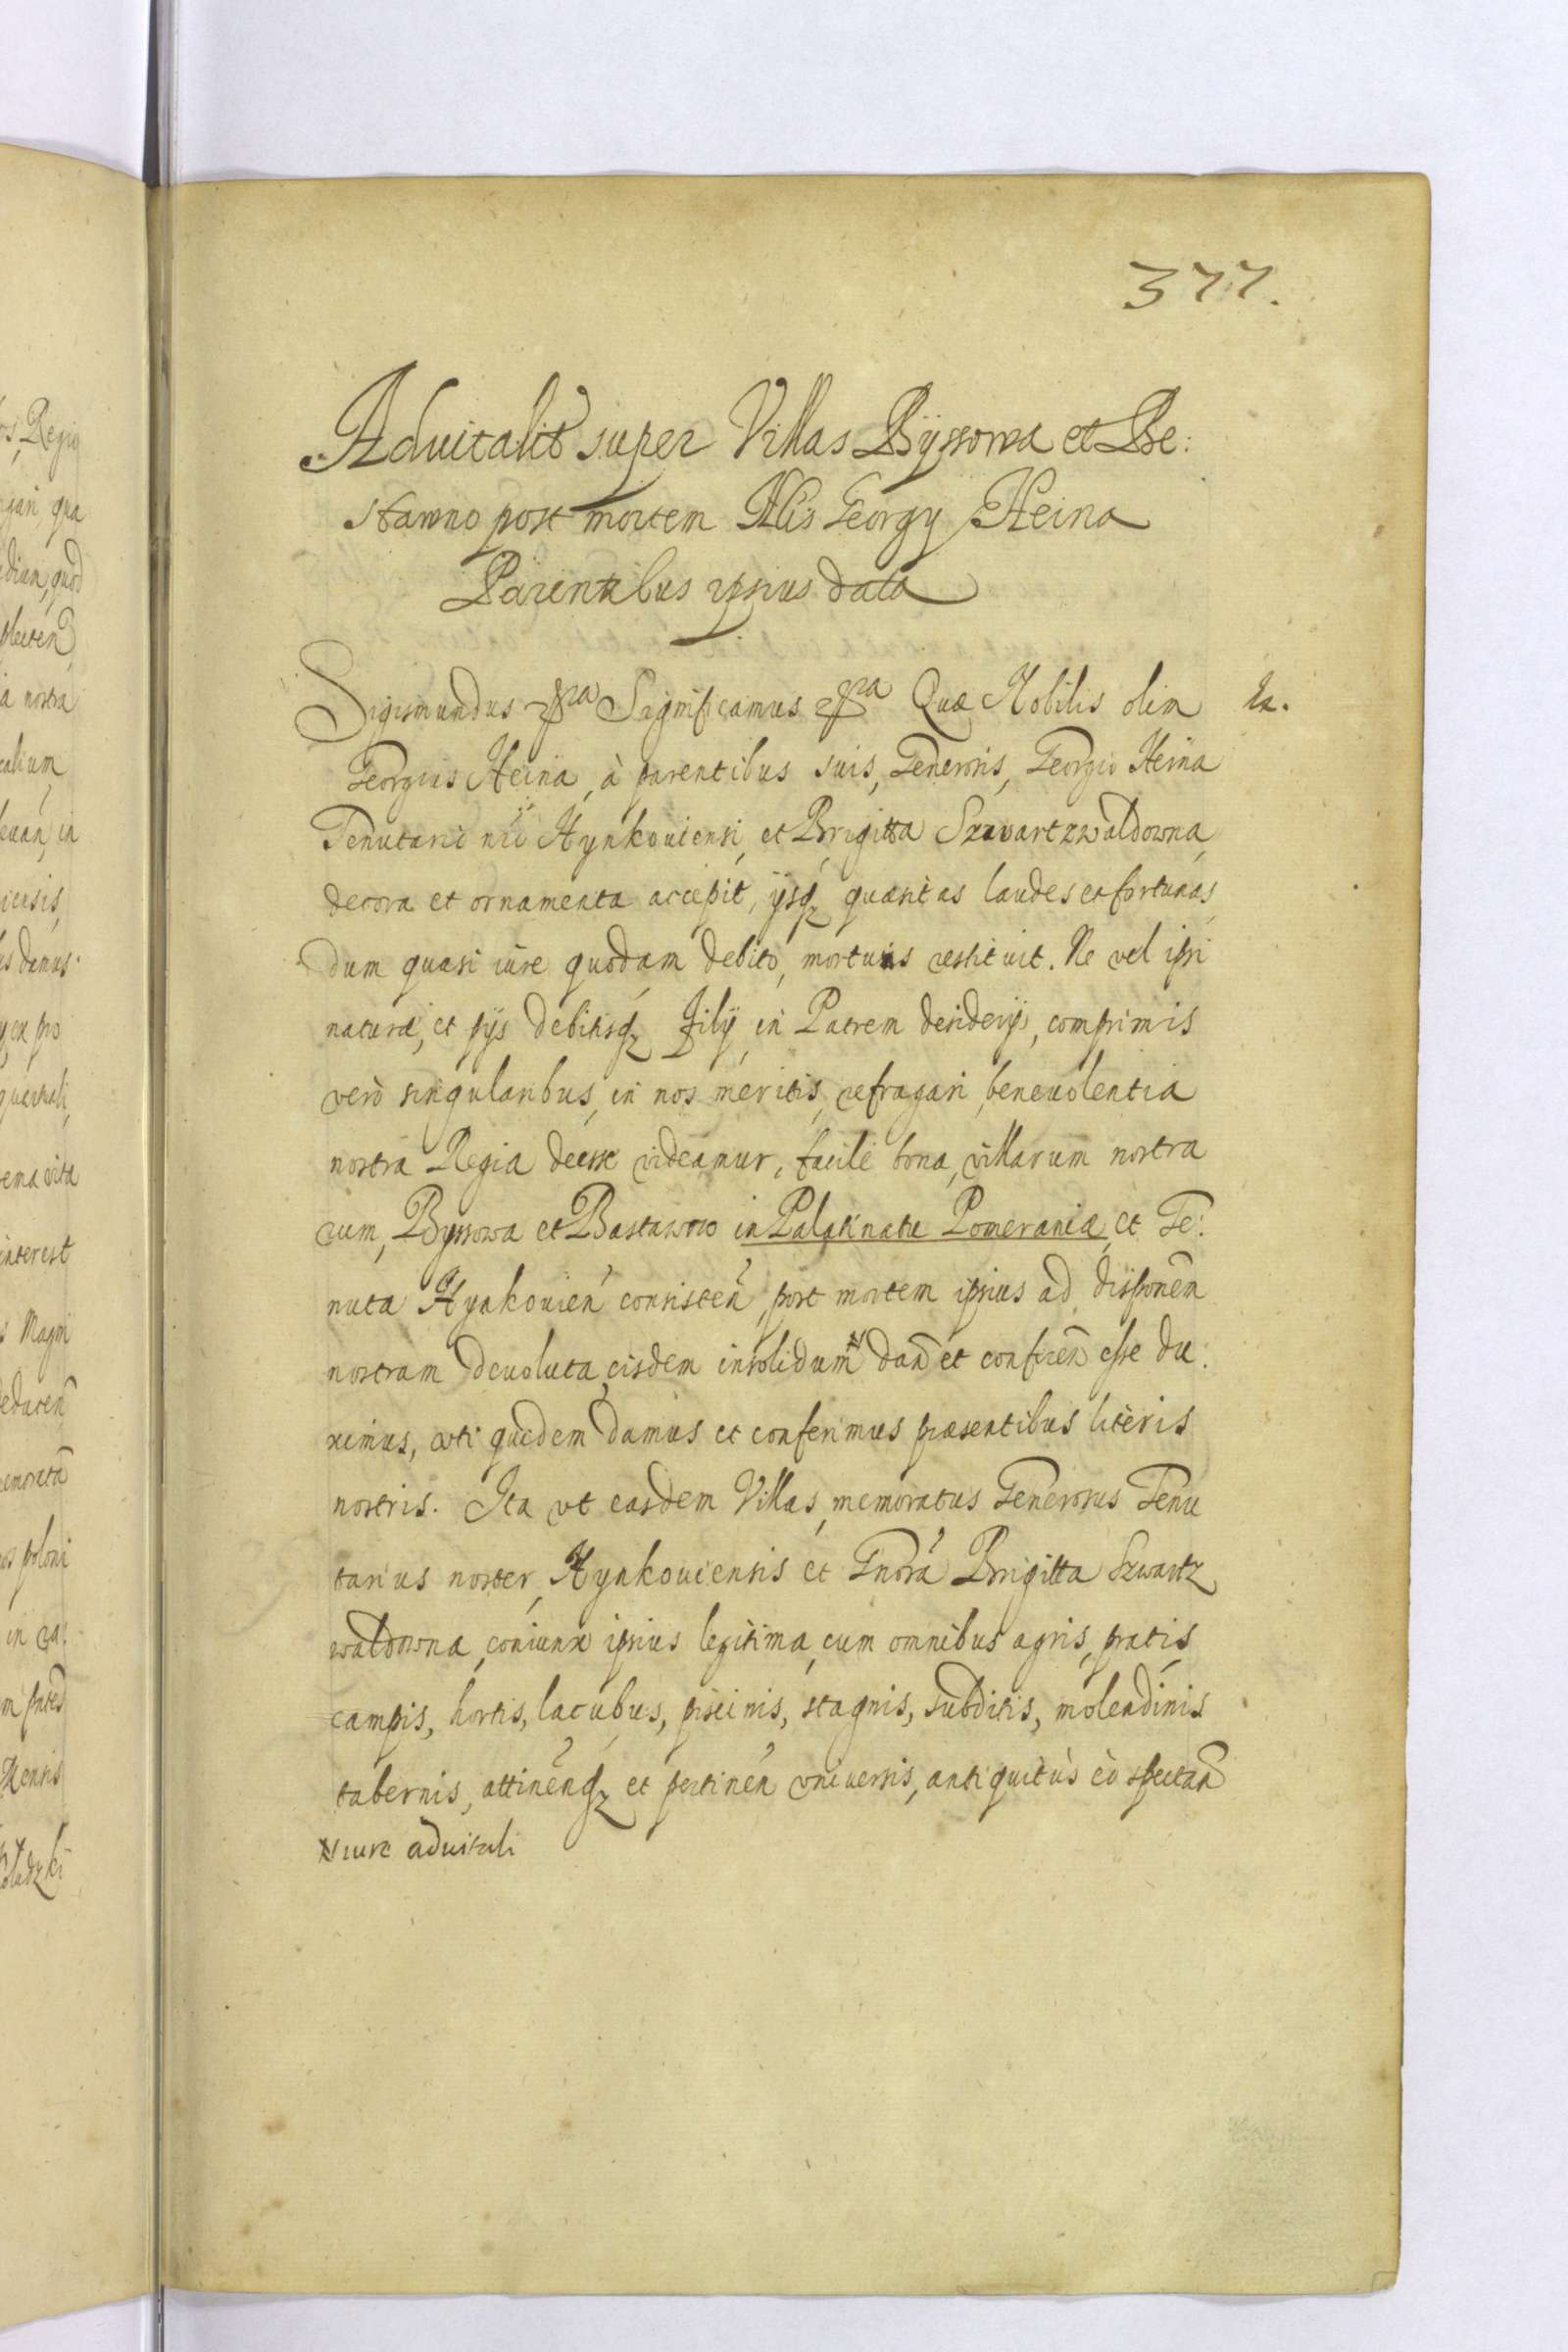 377.
Aduitalit super Villas Byssowa et Be:
stawno post mortem Nlis Georgy Heina
Parentibus ipsius data
Sigismundus etc Significamus etc Quæ Nobilis olim
Georgius Heina, à parentibus suis, Generosis, Georgio Heina
Tenutario nrō Hynkouiensi, et Brigitta Szwartzwaldowna,
decora et ornamenta accepit, ijsqz quæsitas laudes et fortunas,
dum quasi iure quodam debito, mortuus restituit. Ne vel ipsi
naturæ, et pijs debitisqz filij in Patrem desiderijs, comprimis
verò singularibus, in nos meritis, refragari, benevolentia
nostra Regia deesse videamur, facile bona, villarum nostra
rum, Byssowa et Bastawno in Palatinatu Pomeraniæ, et Te:
nuta Hynkouien consisten, post mortem ipsius ad disponen
nostram deuoluta, eisdem insolidum dan et conferen esse du:
ximus, vti quidem damus et conferimus præsentibus literis
nostris. Ita vt easdem Villas, memoratus Generosus Tenu
tarius noster, Hynkouiensis et Gnora Brigitta Szwartz
waldowna, coniunx ipsius legitima, cum omnibus agris, pratis,
campis, hortis, lacubus, piscinis, stagnis, subditis, molendinis
tabernis, attinenqz et pertinen vniuersis, antiquitùs eò spectan
iure aduitali